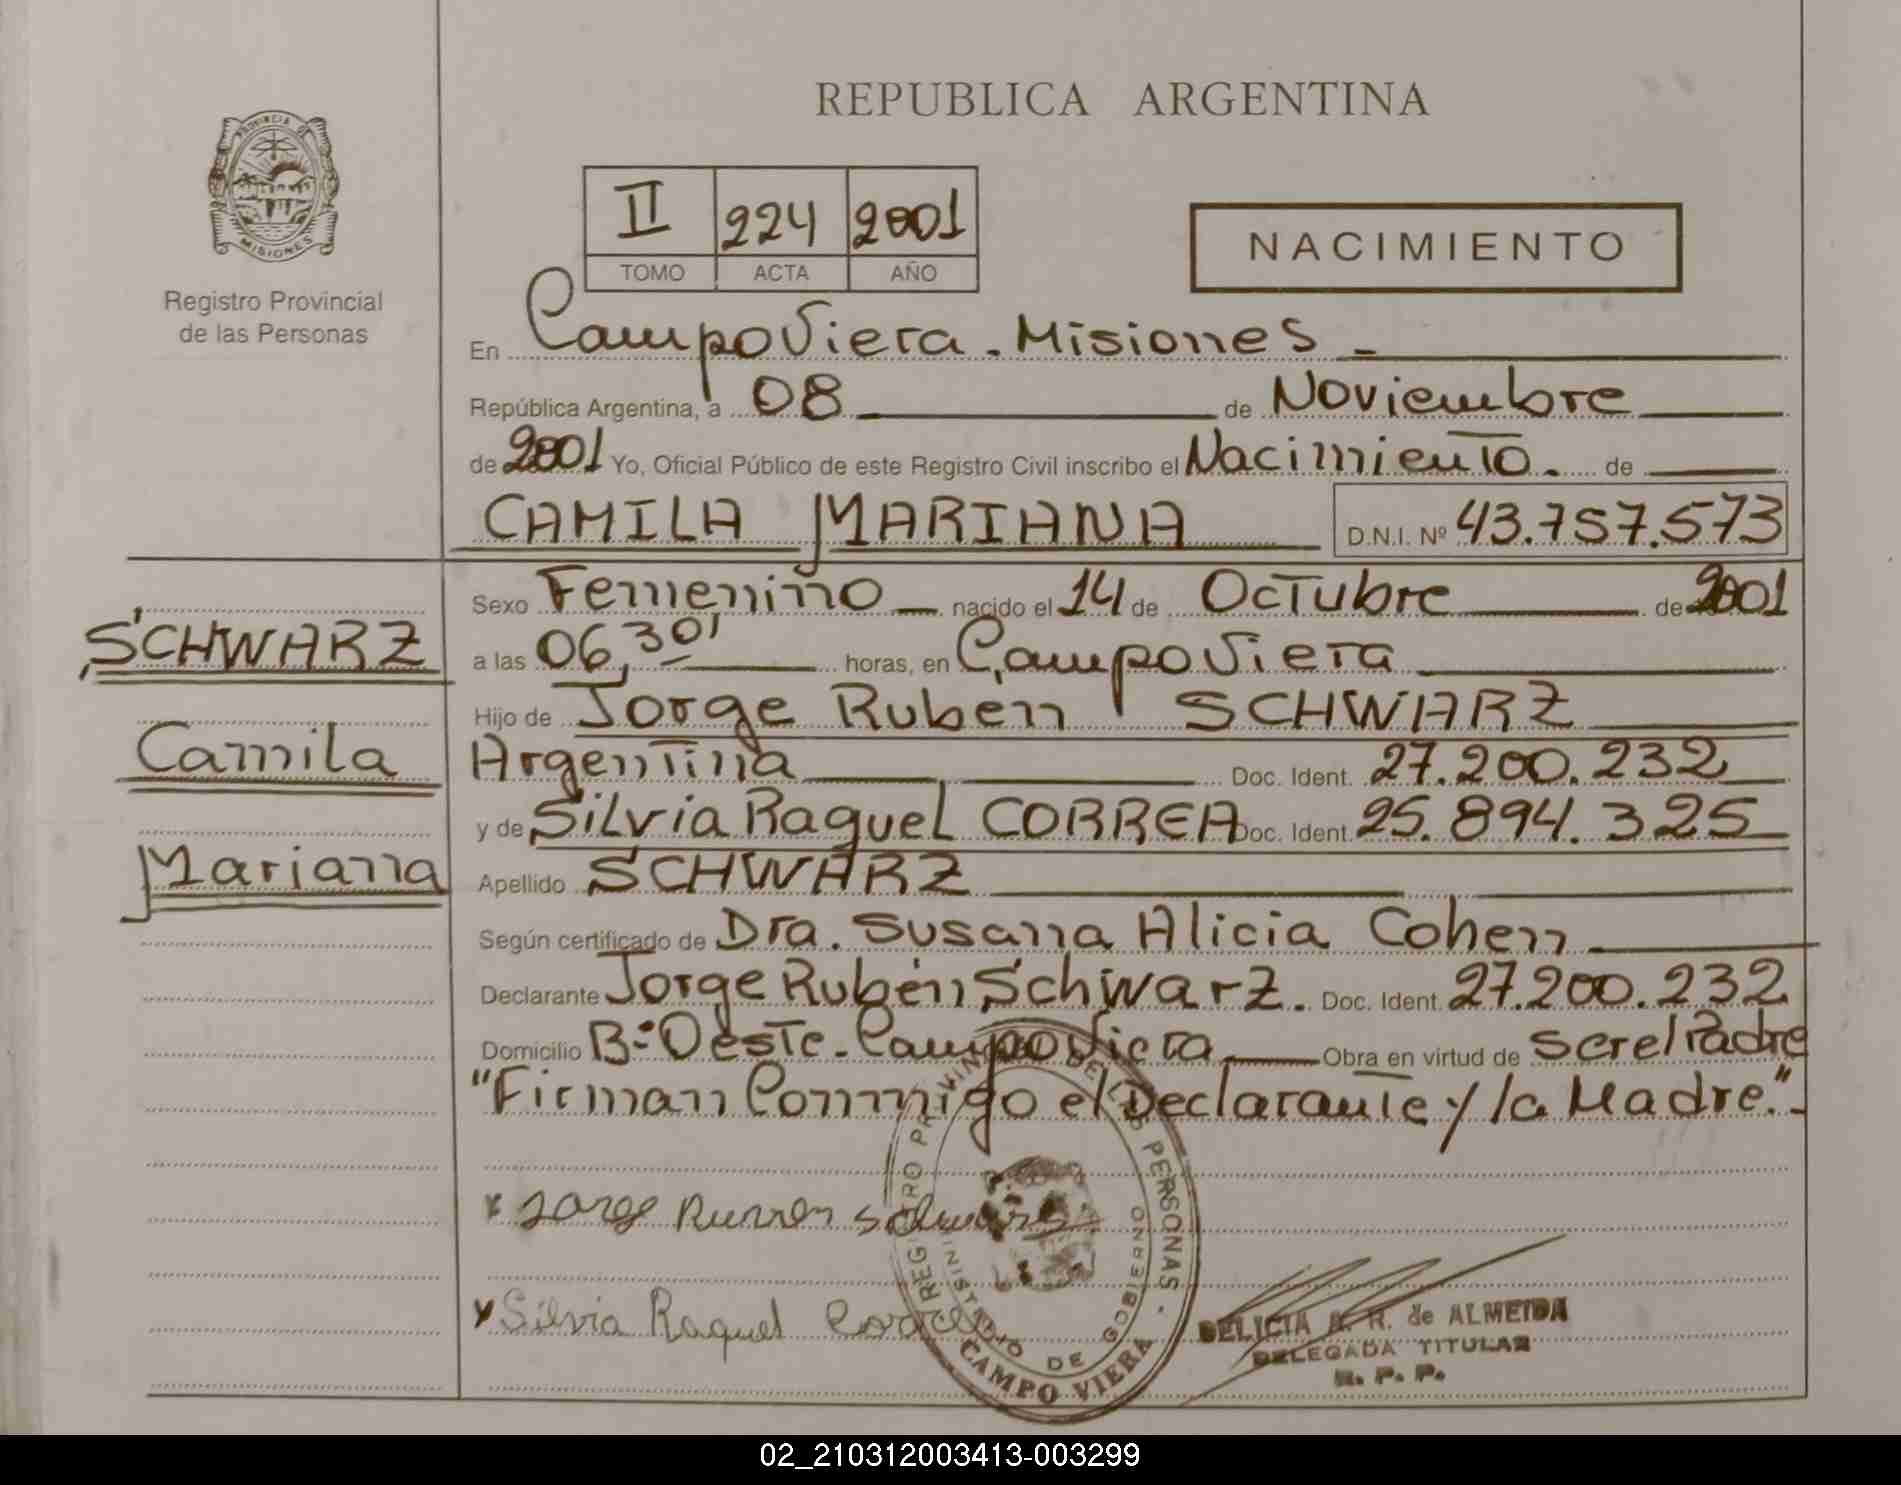 REPUBLICA ARGENTINA
PROVINCIA DE
MISIONES
Registro Provincial
de las Personas
II 224 2001
TOMO ACTA AÑO
NACIMIENTO
En Campo Viera - Misiones -
República Argentina, a 08 de Noviembre
de 2001 Yo, Oficial Público de este Registro Civil inscribo el Nacimiento. de
CAMILA MARIANA D.N.I. Nº 43.757.573
SCHWARZ
Camila
Mariana
Sexo Femenino nacido el 14 de Octubre de 2001
a las 06,30' horas, en Campo Viera
Hijo de Jorge Rubén SCHWARZ
Argentina Doc. Ident. 27.200.232
y de Silvia Raquel CORREA Doc. Ident. 25.894.325
Apellido SCHWARZ
Según certificado de Dra. Susana Alicia Cohen
Declarante Jorge Rubén Schwarz. Doc. Ident. 27.200.232
Domicilio Bº Oeste - Campo Viera Obra en virtud de ser el Padre
"Firman Conmigo el Declarante y la Madre." -
x Jorge Ruben Schwarz
x Silvia Raquel Correa
REGISTRO PROVINCIAL DE LAS PERSONAS -
MINISTERIO DE GOBIERNO
CAMPO VIERA
DELICIA A. R. de ALMEIDA
DELEGADA TITULAR
R. P. P.
02_210312003413-003299